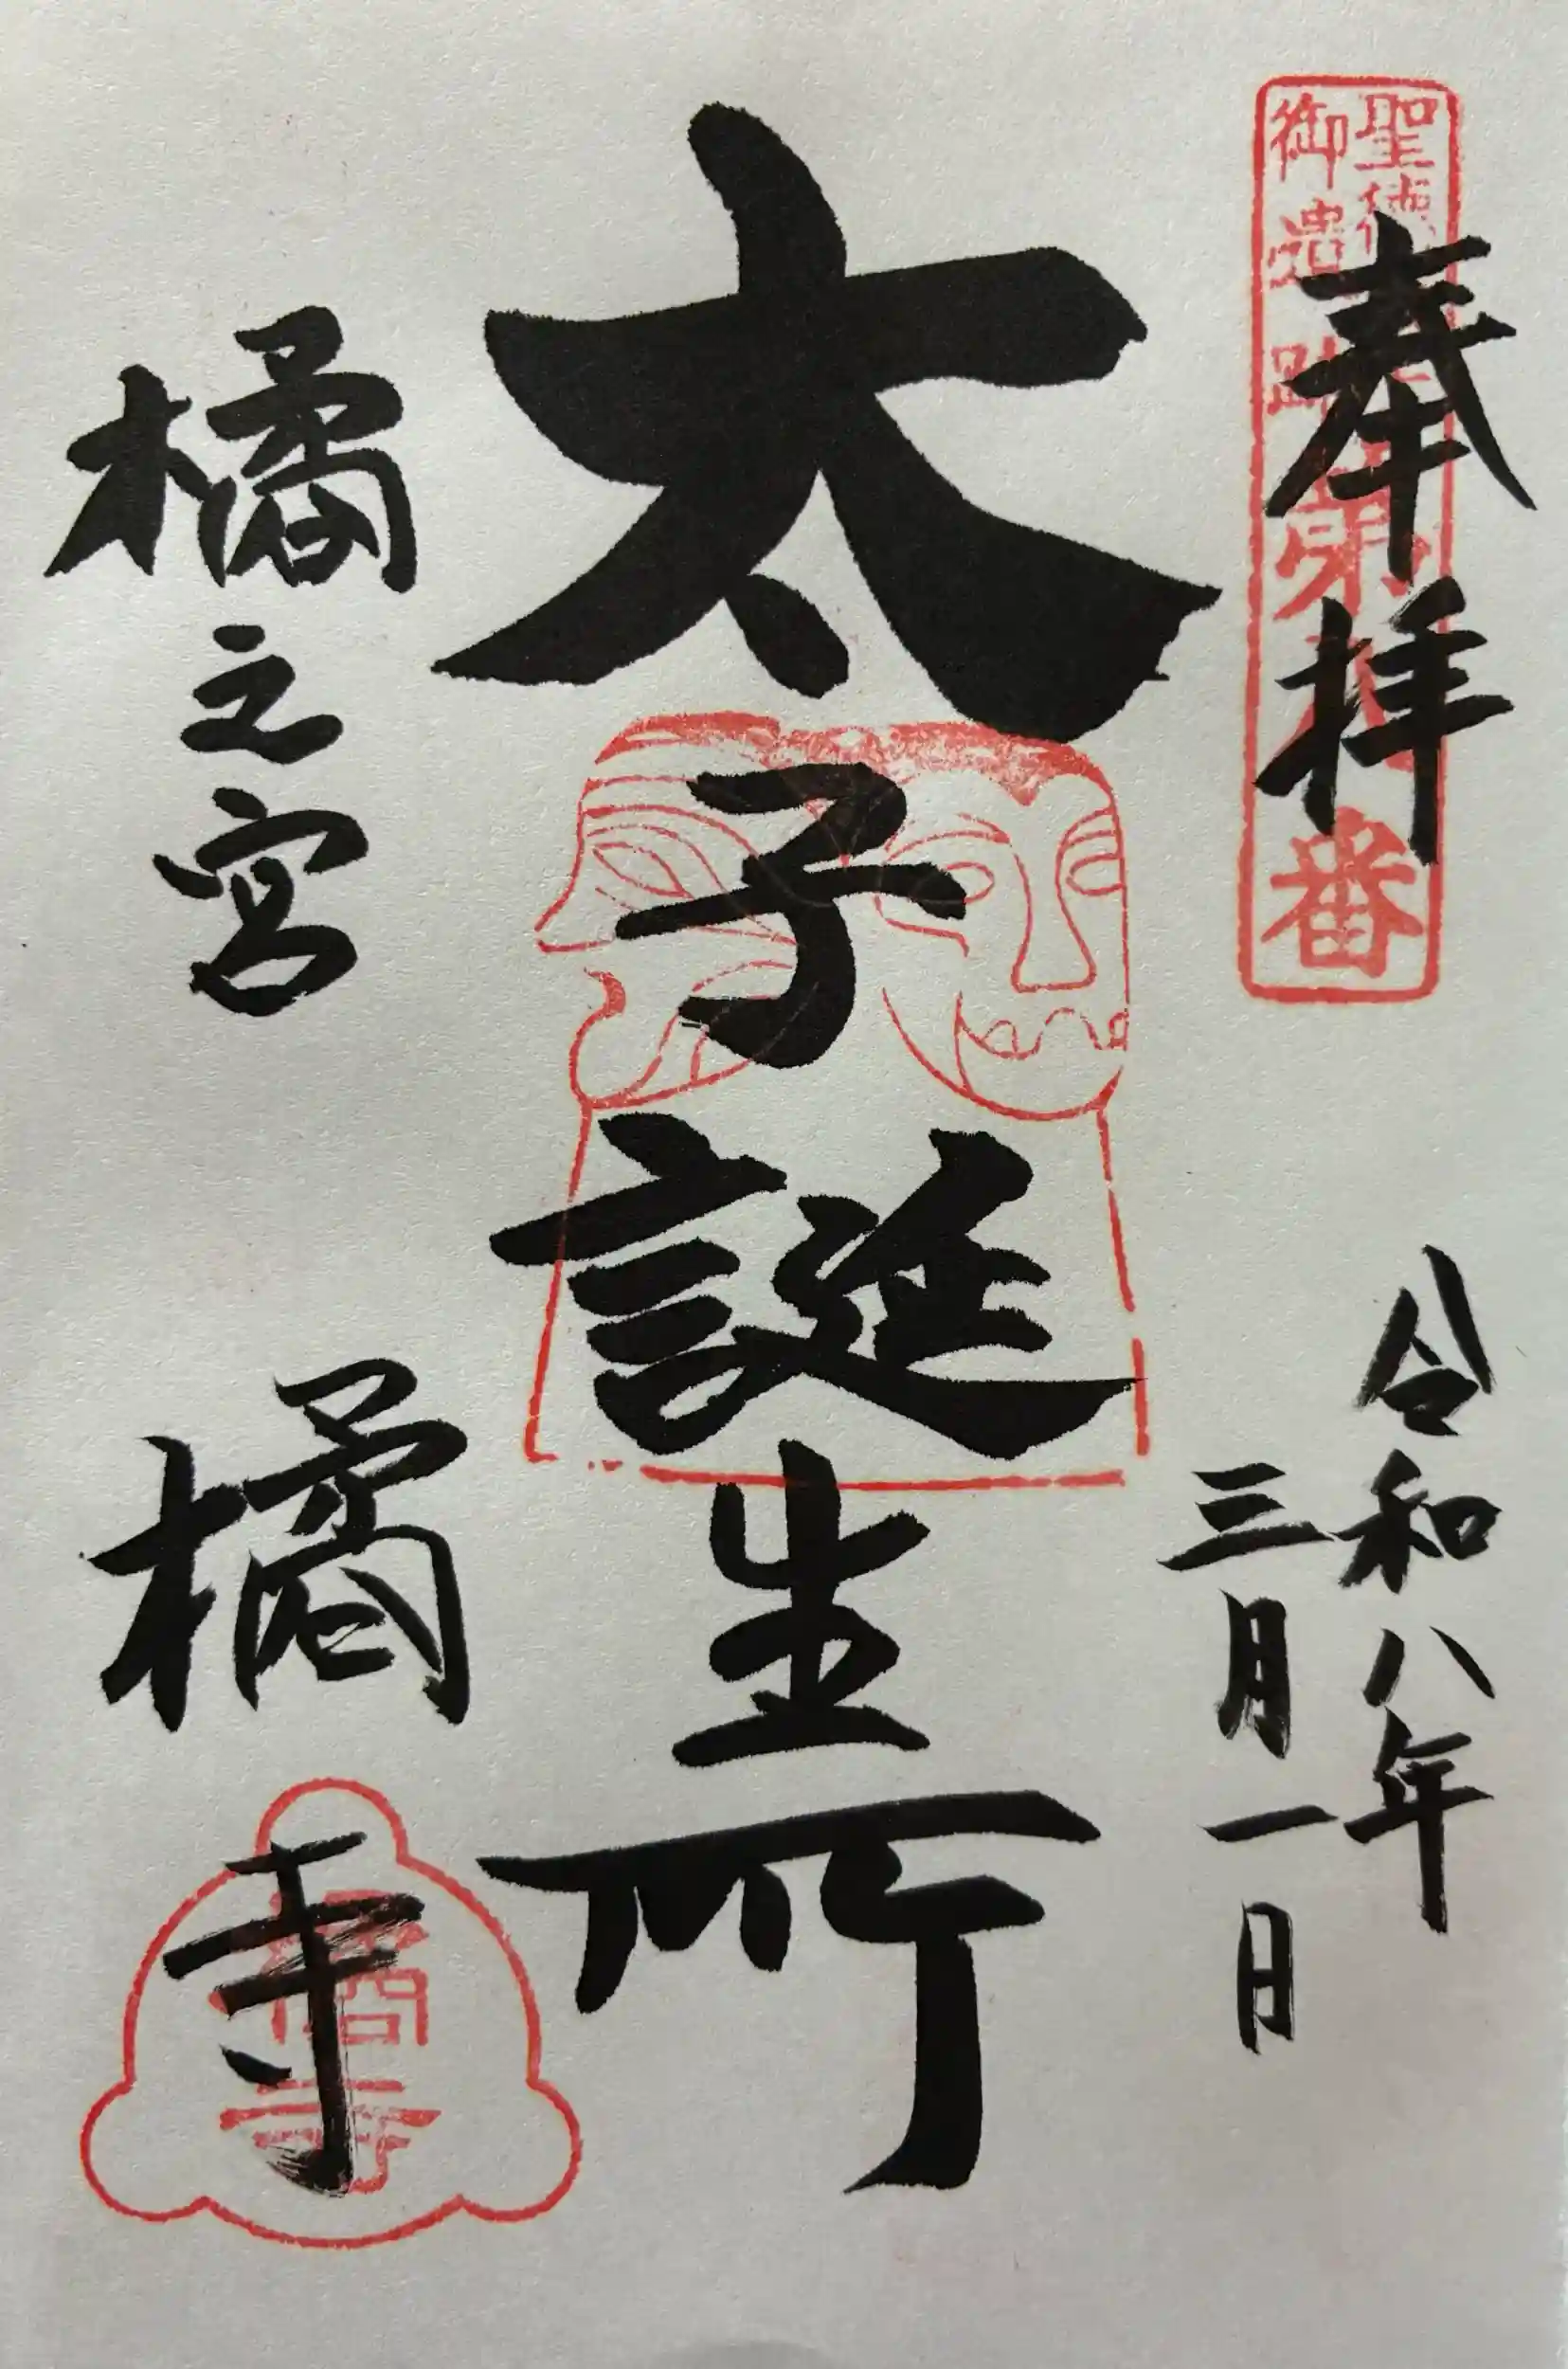 奉拝
聖徳
御遺跡第
番
令和八年
三月一日
太子誕生所
橘之宮
橘寺
橘寺